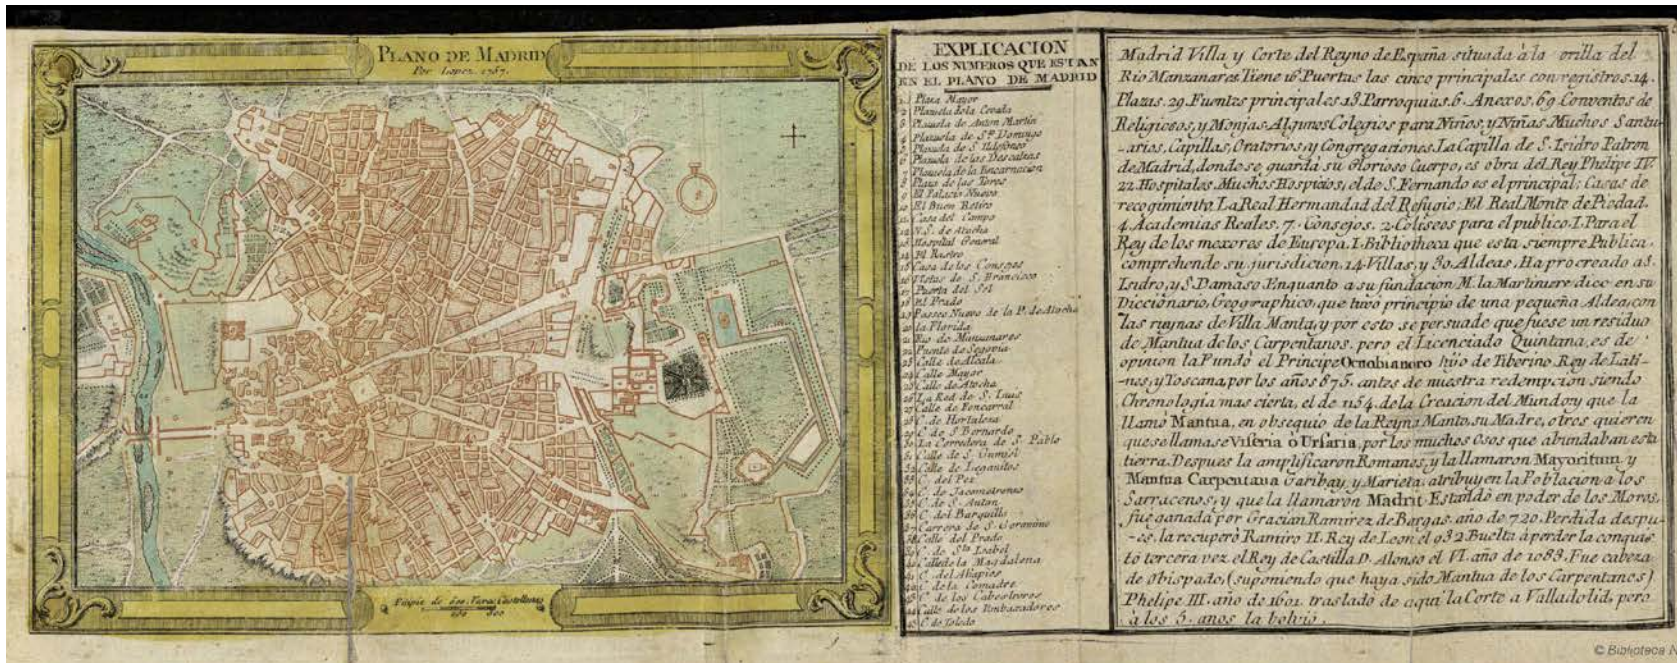 PLANO DE MADRID
Por Lopez 1757.
Pitipie de 600. Varas Castellanas
EXPLICACION
DE LOS NUMEROS QUE ESTAN
EN EL PLANO DE MADRID
1 Plaza Mayor
2 Plazuela de la Cevada
3 Plazuela de Anton Martin
4 Plazuela de Sto Domingo
5 Plazuela de S. Ildefonso
6 Plazuela de las Descalzas
7 Plazuela de la Encarnacion
8 Plaza de los Toros
9 El Palacio Nuevo
10 El Buen Retiro
11 Casa del Campo
12 N.S. de Atocha
13 Hospital General
14 El Rastro
15 Casa de los Consejos
16 Vistas de S. Francisco
17 Puerta del Sol
18 El Prado
19 Passeo Nuevo de la P. de Atocha
20 la Florida
21 Rio de Manzanares
22 Puente de Segovia
23 Calle de Alcala
24 Calle Mayor
25 Calle de Atocha
26 La Red de S. Luis
27 Calle de Foncarral
28 C. de Hortaleza
29 C. de S. Bernardo
30 La Corredera de S. Pablo
31 Calle de S. Gumiel
32 Calle de Leganitos
33 C. del Pez
34 C. de Jacometrenzo
35 C. de S. Anton
36 C. del Barquillo
37 Carrera de S. Geronimo
38 Calle del Prado
39 C. de Sta Isabel
40 Calle de la Magdalena
41 C. del Abapies
42 C. de la Comadre
43 C. de los Cabestreros
44 Calle de los Embaxadores
45 C. de Toledo
Madrid Villa y Corte del Reyno de España situada à la orilla del
Rio Manzanares Tiene 16 Puertas las cinco principales con registros. 14.
Plazas. 29. Fuentes principales 13. Parroquias. 6. Anexos. 69. Conventos de
Religiosos, y Monjas. Algunos Colegios para Niños, y Niñas Muchos Santu-
-arios, Capillas, Oratorios, y Congregaciones. La Capilla de S. Isidro Patron
de Madrid, donde se guarda su Glorioso Cuerpo, es obra del Rey Phelipe IV.
22 Hospitales. Muchos Hospicios, el de S. Fernando es el principal; Casas de
recogimiento. La Real Hermandad del Refugio; El Real Monte de Piedad.
4. Academias Reales. 7. Consejos. 2. Coliseos para el publico. I. Para el
Rey de los mexores de Europa. I. Bibliotheca que esta siempre Publica.
comprehende su jurisdicion, 14 Villas, y 30. Aldeas. Ha procreado a S.
Isidro, y S. Damaso Enquanto a su fundacion M. la Martiniere dice en su
Diccionario, Geographico, que tuvo principio de una pequeña Aldea, con
las ruynas de Villa Manta, y por esto se persuade que fuese un residuo
de Mantua de los Carpentanos. pero el Licenciado Quintana, es de
opinion la Fundó el Principe Ocnobianoro hijo de Tiberino Rey de Lati-
-nes, y Toscana, por los años 875. antes de nuestra redempcion siendo
Chronologia mas cierta, el de 1154. de la Creacion del Mundo: y que la
llamó Mantua, en obsequio de la Reyna Manto, su Madre, otros quieren
que se llamase Viseria ò Ursaria, por los muchos Osos que abundaban esta
tierra. Despues la amplificaron Romanos, y la llamaron Mayoritum y
Mantua Carpentana Garibay, y Marieta: atribuyen la Poblacion a los
Sarracenos, y que la llamaron Madrit Estando en poder de los Moros,
fue ganada por Gracian Ramirez de Bargas. año de 720. Perdida despu-
-es, la recuperó Ramiro II. Rey de Leon el 932. Buelta á perder la conquis
tó tercera vez el Rey de Castilla D. Alonso el VI. año de 1083. Fue cabeza
de obispado, (suponiendo que haya sido Mantua de los Carpentanos)
Phelipe III. año de 1601. traslado de aqui la Corte a Valladolid, pero
a los 5. años la bolvio.
© Biblioteca